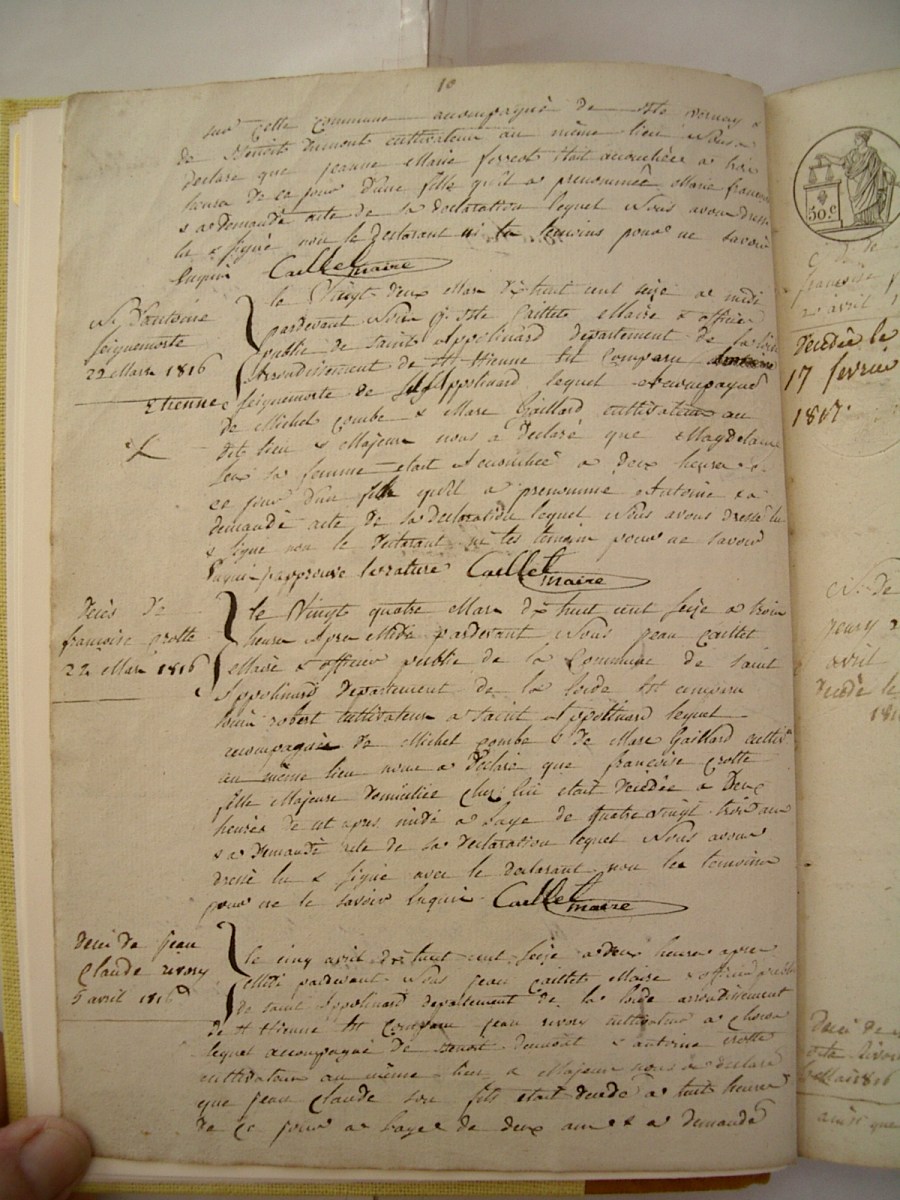 10
sur cette commune accompagné de Vernay &
de Benoit Dumont cultivateur au même lieu Nous a
declaré que jeanne Marie ferreol était accouchée a trois
heures de ce jour d'une fille qu'il a prenommée Marie francoise
& a demandé acte de sa declaration lequel Nous avons dressé
lu & signé non le Declarant ni les temoins pour ne savoir
Enquis Caillet maire
N. D'antoine
seignemorte
22 Mars 1816
le Vingt deux Mars dix huit cent seize a midi
pardevant Nous Caillet Maire & officier
public de saint Appolinard departement de la loire
arrondissement de St Etienne Est comparu
Etienne seignemorte de St Appolinard lequel accompagné
de Michel combe & Marc Gaillard cultivateurs au
dit lieu & Majeurs nous a declaré que Magdelaine
sa femme etait accouchée a deux heures
ce jour d'un fils qu'il a prenommé Antoine & a
demandé acte de sa declaration lequel Nous avons dressé lu
& signé non le declarant ni les temoins pour ne savoir
Enquis j'approuve la rature Caillet maire
décès de
françoise crotte
22 Mars 1816
le Vingt quatre Mars dix huit cent seize a trois
heures Apres Midi pardevant Nous jean Caillet
Maire & officier public de la Commune de saint
Appolinard departement de la loire Est comparu
robert cultivateur a saint Appolinard lequel
accompagné de Michel combe & de Marc Gaillard cultivr
au même lieu nous a déclaré que françoise crotte
fille Majeure domiciliée chez lui etait décédée a Deux
heures de cet apres midi a l'age de quatre vingt trois ans
& a demandé acte de sa declaration lequel Nous avons
dressé lu & signé avec le declarant non les temoins
pour ne le savoir Enquis Caillet maire
déces de jean
Claude rivory
5 avril 1816
le cinq avril dix huit cent seize a deux heures apres
Midi pardevant Nous jean Caillet Maire & officier public
de saint Appolinard departement de la loire arrondissement
de St Etienne Est comparu jean rivory cultivateur a
lequel accompagné de Benoit Dumont & antoine crotte
cultivateurs au même lieu & Majeurs nous a declaré
que jean Claude son fils etait décédé a huit heures
de ce jour a l'age de deux ans & a demandé
50c
francoise
2 avril 1
décédée le
17 fevrier
1817.
N. de
avril
décédé le
181
déces de
1816